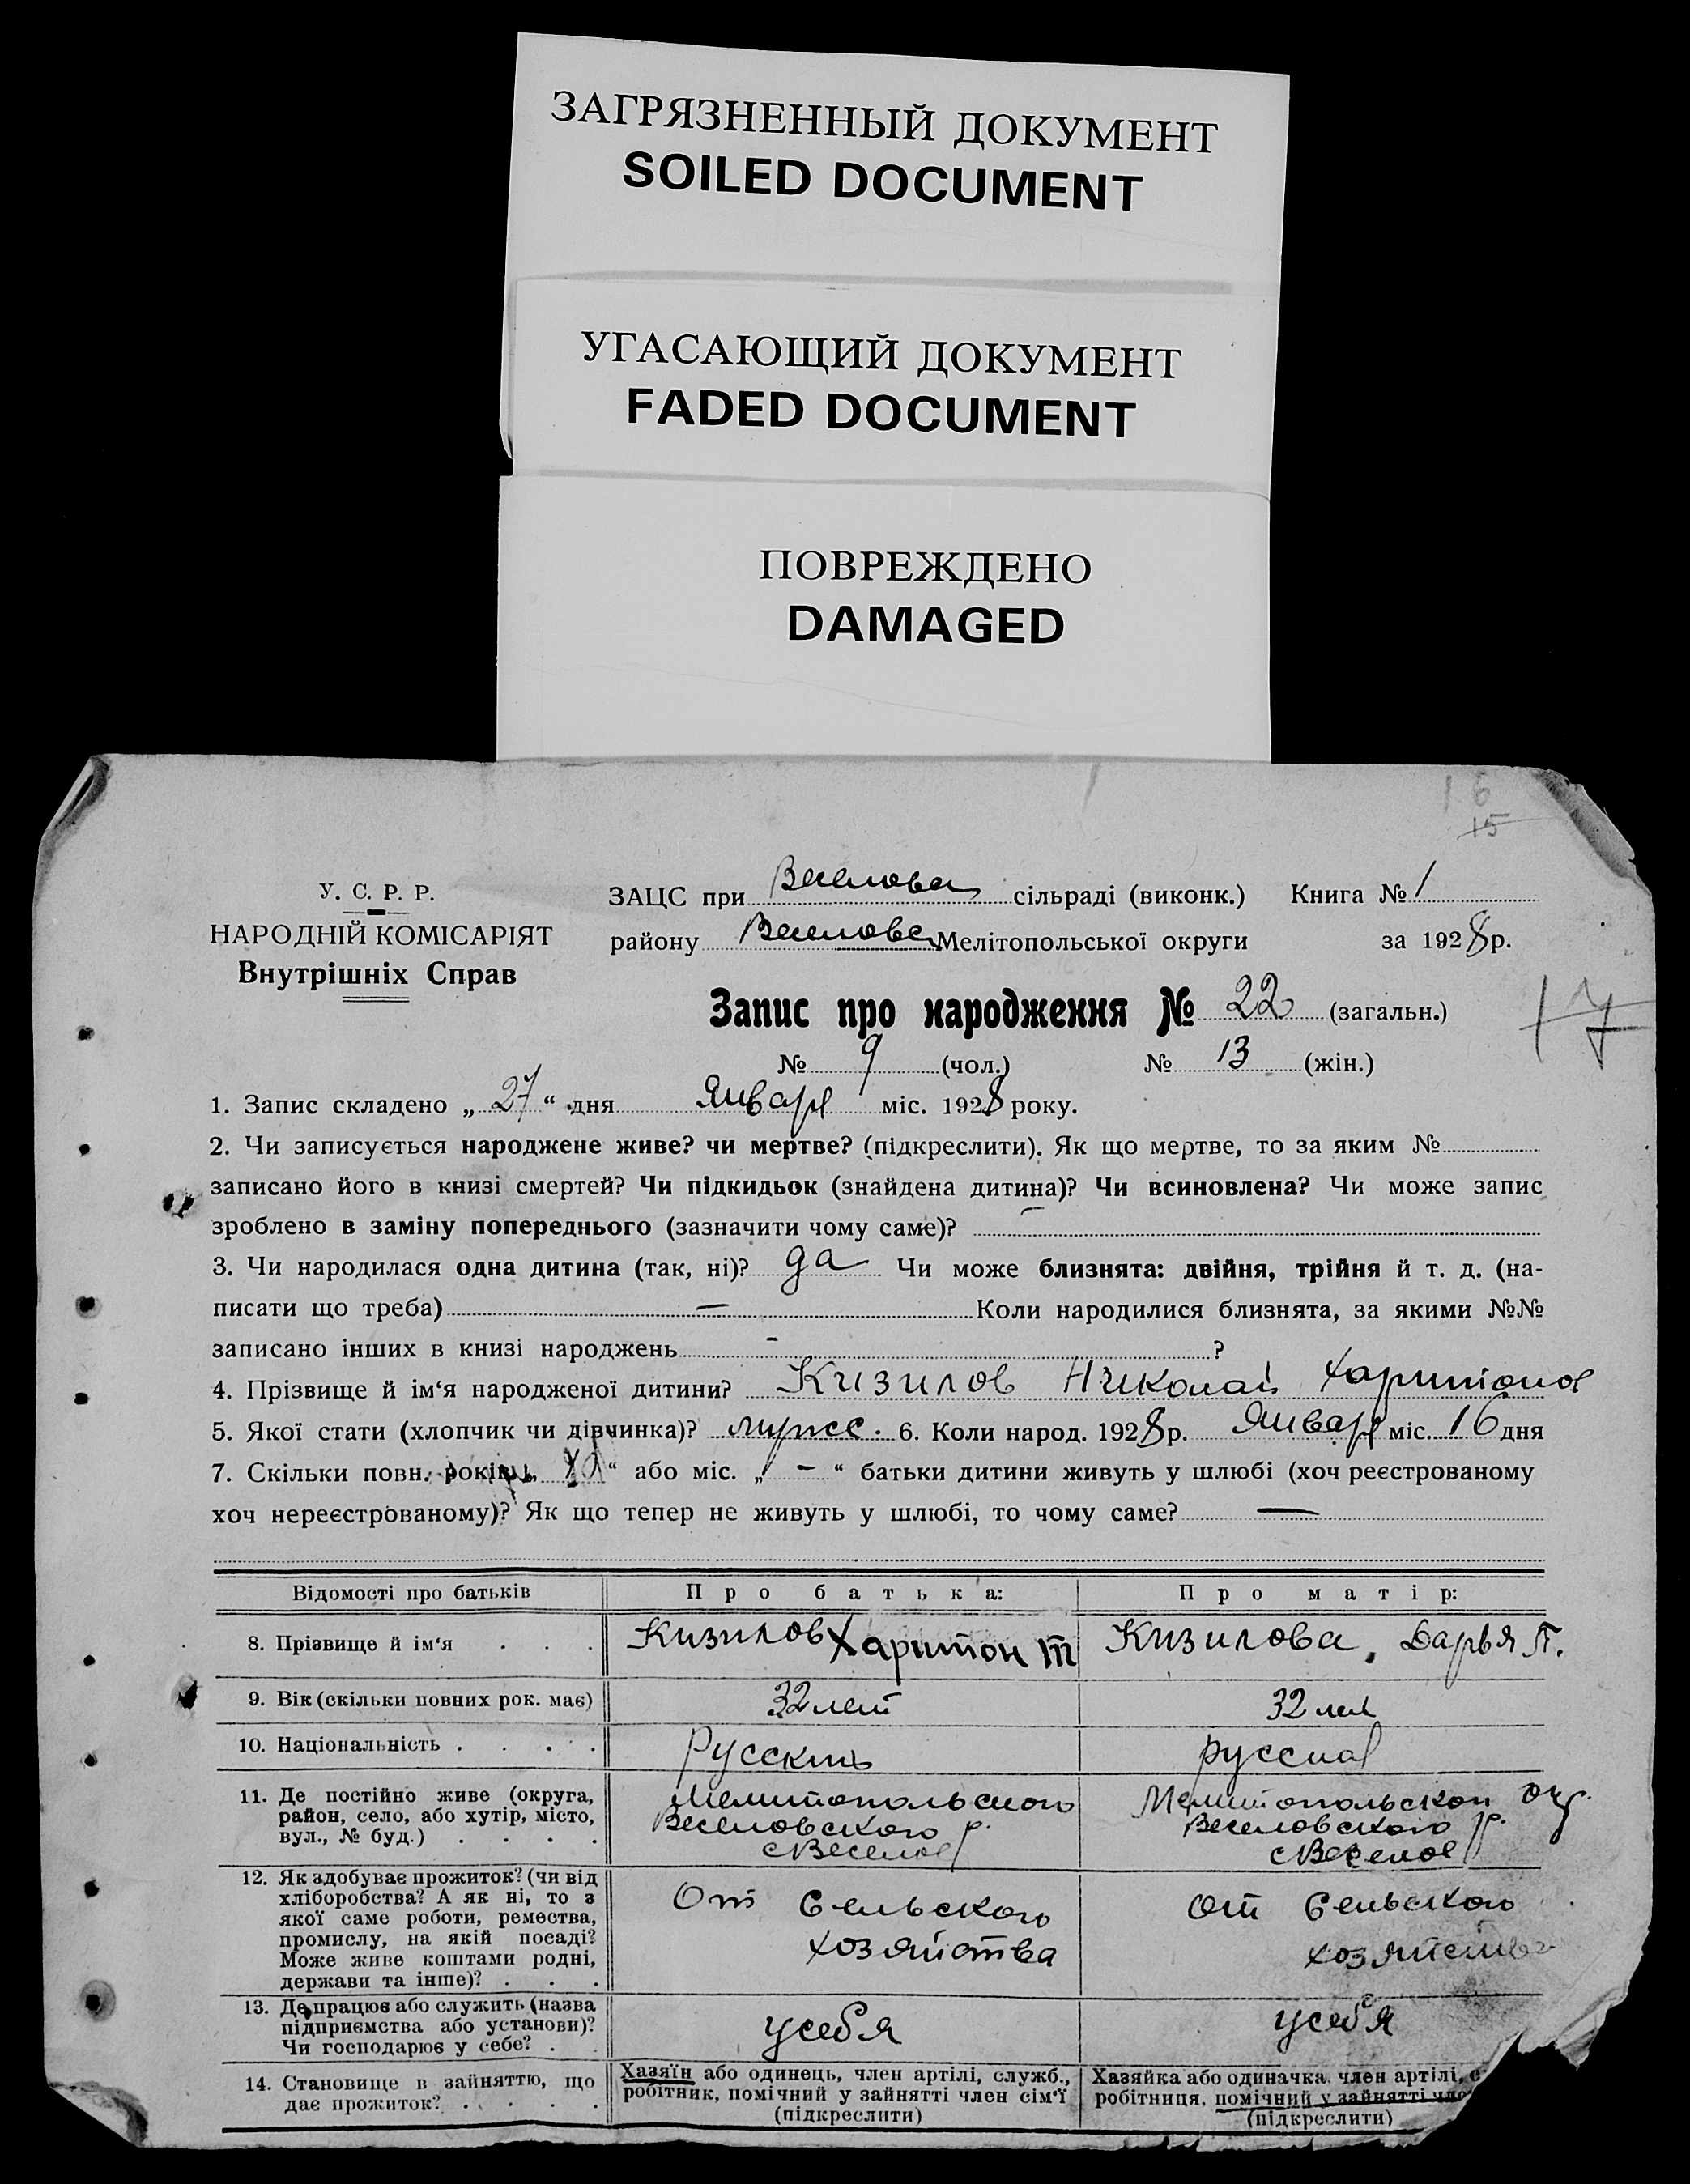 ЗАГРЯЗНЕННЫЙ ДОКУМЕНТ
SOILED DOCUMENT
УГАСАЮЩИЙ ДОКУМЕНТ
FADED DOCUMENT
ПОВРЕЖДЕНО
DAMAGED
16
15
У. С. Р. Р.
НАРОДНІЙ КОМІСАРІЯТ
Внутрішніх Справ
ЗАЦС при Веселовск сільраді (виконк.) Книга № 1
району Веселовск Мелітопольської округи за 1928 р.
Запис про народження № 22 (загальн.)
17
№ 9 (чол.) № 13 (жін.)
1. Запис складено „27“ дня Января міс. 1928 року.
2. Чи записується народжене живе? чи мертве? (підкреслити). Як що мертве, то за яким №
записано його в книзі смертей? Чи підкидьок (знайдена дитина)? Чи всиновлена? Чи може запис
зроблено в заміну попереднього (зазначити чому саме)? —
3. Чи народилася одна дитина (так, ні)? да Чи може близнята: двійня, трійня й т. д. (на-
писати що треба) — Коли народилися близнята, за якими №№
записано інших в книзі народжень - ?
4. Прізвище й ім‘я народженої дитини? Кизилов Николай Харитонов
5. Якої стати (хлопчик чи дівчинка)? мужс. 6. Коли народ. 1928 р. Января міс. 16 дня
7. Скільки повн. років „ “ або міс. „ - “ батьки дитини живуть у шлюбі (хоч реєстрованому
хоч нереєстрованому)? Як що тепер не живуть у шлюбі, то чому саме? —
Відомості про батьків Про батька: Про матір:
8. Прізвище й ім‘я . . . Кизилов Харитон Т Кизилова, Дарья П.
9. Вік (скільки повних рок. має) 32 лет 32 лет
10. Національність . . . . Русский русская
11. Де постійно живе (округа, район, село, або хутір, місто, вул., № буд.) . . . .
Мелитопольского
Веселовского р.
с Веселое
Мелитопольской окр.
Веселовского р.
с Веселое
12. Як здобуває прожиток? (чи від хліборобства? А як ні, то з якої саме роботи, ремества, промислу, на якій посаді? Може живе коштами родні, держави та інше)? . . .
От Сельского
хозяйства
От Сельского
хозяйства
13. Де працює або служить (назва підприємства або установи)? Чи господарює у себе? . .
усебя
усебя
14. Становище в зайняттю, що дає прожиток? . . . .
Хазяїн або одинець, член артілі, служб.,
робітник, помічний у зайнятті член сім‘ї
(підкреслити)
Хазяйка або одиначка, член артілі, с
робітниця, помічний у зайнятті чле
(підкреслити)